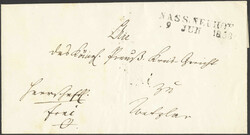 NASSENHUBEN
9 JUN
An
das Königl. Preuß. Kreis Gericht
zu
Herrschaftl.
frei
Wetzlar